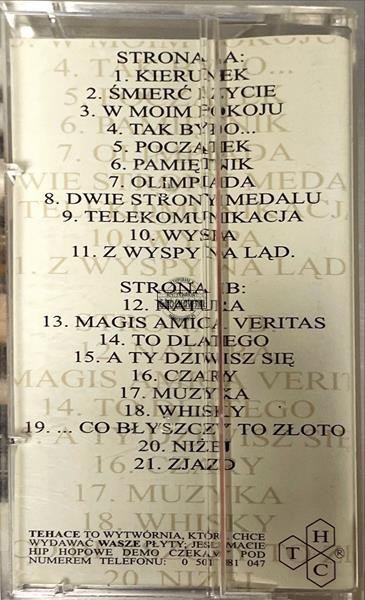 STRONA A:
1. KIERUNEK
2. ŚMIERĆ I ŻYCIE
3. W MOIM POKOJU
4. TAK BYŁO...
5. POCZĄTEK
6. PAMIĘTNIK
7. OLIMPIADA
8. DWIE STRONY MEDALU
9. TELEKOMUNIKACJA
10. WYSPA
11. Z WYSPY NA LĄD.
STRONA B:
12. NATURA
13. MAGIS AMICA VERITAS
14. TO DLATEGO
15. A TY DZIWISZ SIĘ
16. CZARY
17. MUZYKA
18. WHISKY
19. ... CO BŁYSZCZY TO ZŁOTO
20. NIŻEJ
21. ZJAZD
TEHACE TO WYTWÓRNIA, KTÓRA CHCE
WYDAWAĆ WASZE PŁYTY; JEŚLI MACIE
HIP HOPOWE DEMO CZEKAMY POD
NUMEREM TELEFONU: 0 501 081 047
T H C ®